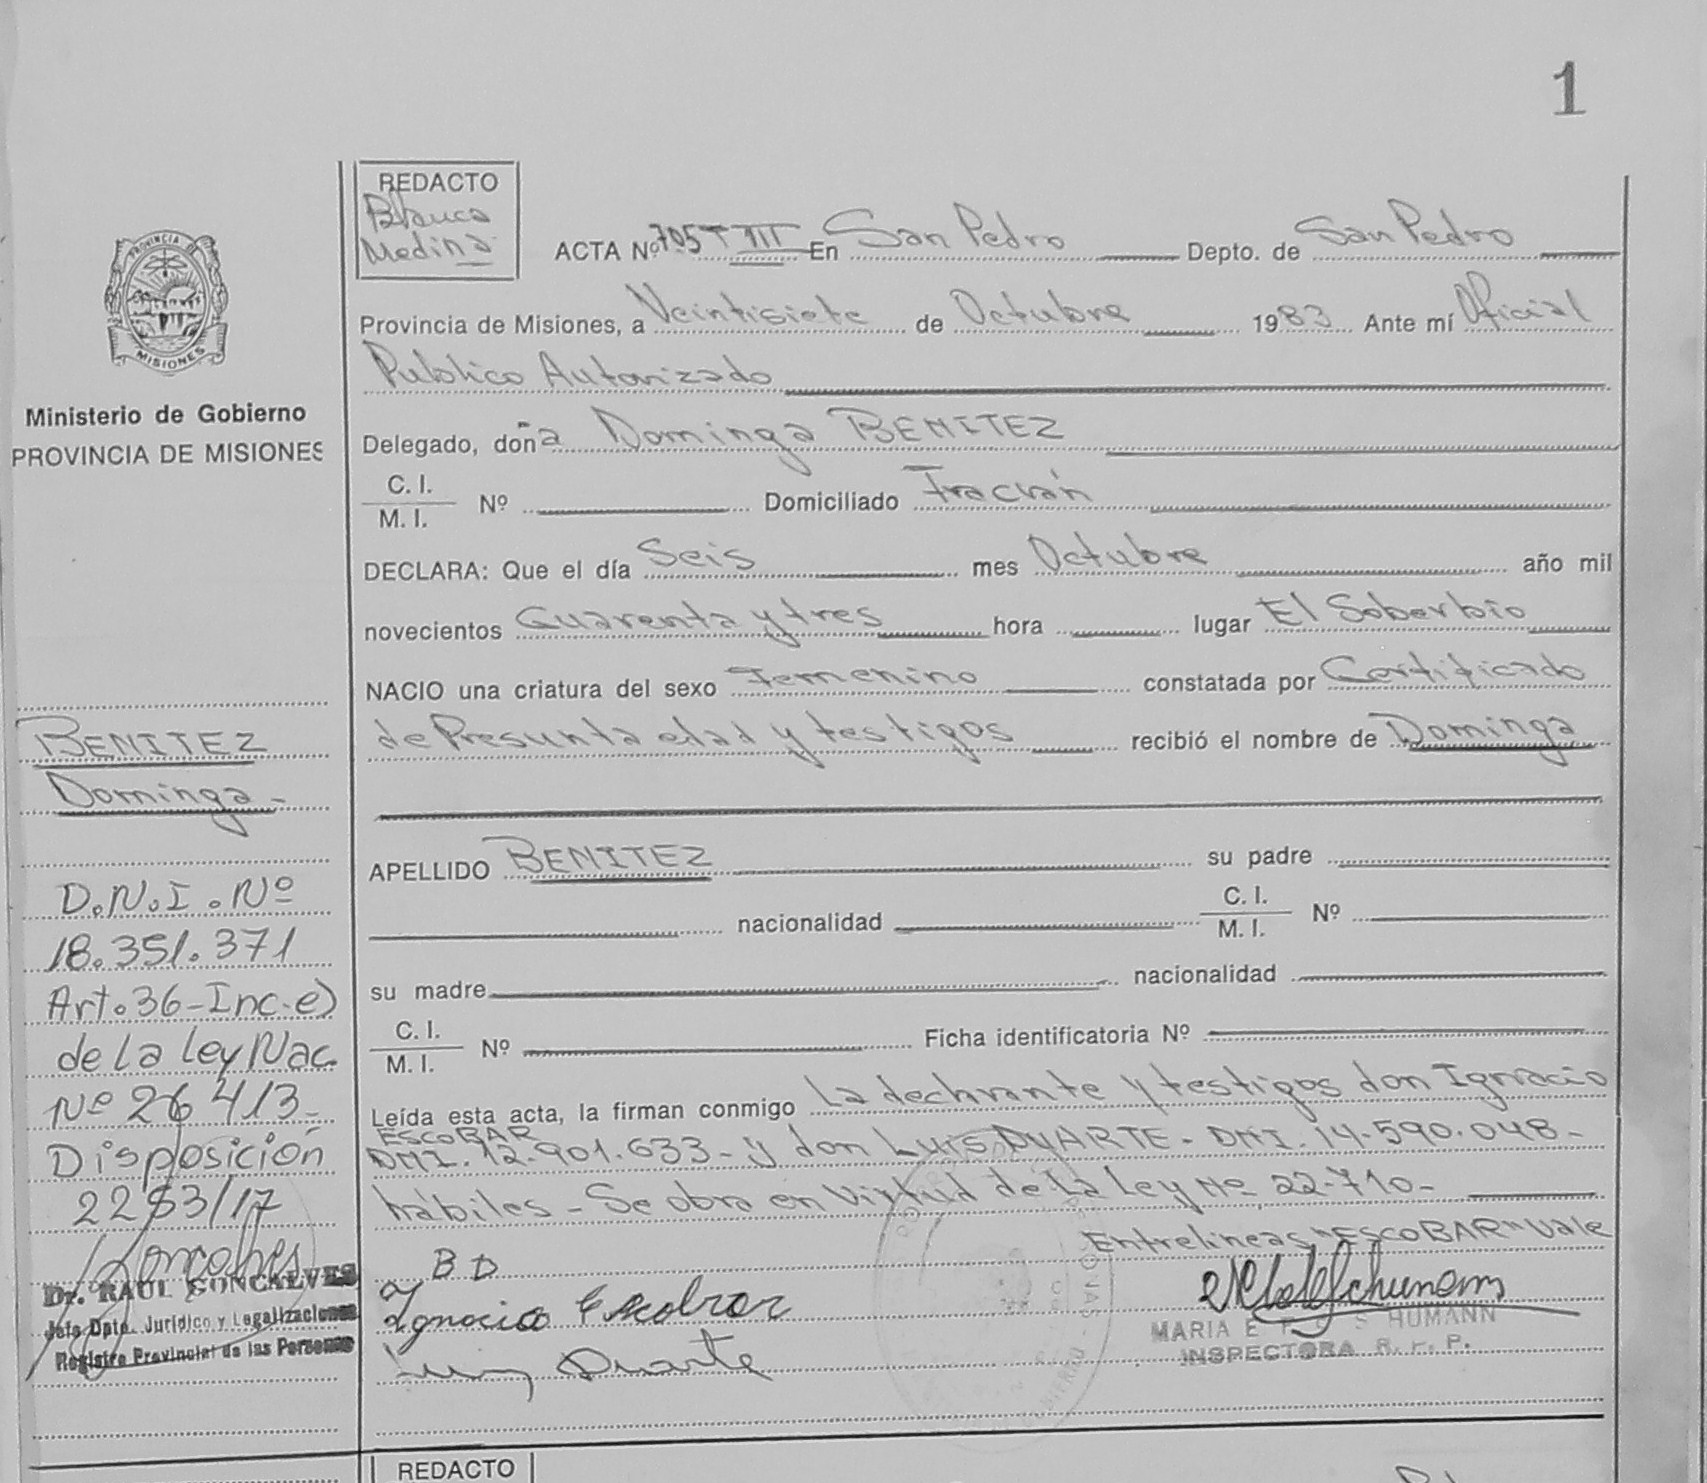 1
REDACTO
Blanca
Medina
ACTA Nº 705 T III En San Pedro Depto. de San Pedro
Provincia de Misiones, a Veintisiete de Octubre 1983 Ante mí Oficial
Publico Autorizado
Delegado, doña Dominga BENITEZ
C. I.
M. I. Nº Domiciliado Fracrán
DECLARA: Que el día Seis mes Octubre año mil
novecientos Cuarenta y tres hora lugar El Soberbio
NACIO una criatura del sexo Femenino constatada por Certificado
de Presunta edad y testigos recibió el nombre de Dominga
APELLIDO BENITEZ su padre
nacionalidad C. I.
M. I. Nº
su madre nacionalidad
C. I.
M. I. Nº Ficha identificatoria Nº
Leída esta acta, la firman conmigo La declarante y testigos don Ignacio
ESCOBAR
DNI. 12.901.633- y don LUIS DUARTE- DNI. 14.590.048-
hábiles - Se obra en virtud de la Ley Nº 22.710-
Entrelineas "ESCOBAR" Vale
B D
Ignacio Escobar
Luis Duarte
MARIA E
HUMANN
INSPECTORA R. P. P.
PROVINCIA DE
MISIONES
Ministerio de Gobierno
PROVINCIA DE MISIONES
BENITEZ
Dominga-
D.N.I. Nº
18.351.371
Art. 36-Inc. e)
de La Ley Nac.
Nº 26413-
Disposición
2253/17
Dr. RAUL GONCALVES
Jefe Dpto. Jurídico y Legalizaciones
Registro Provincial de las Personas
REDACTO